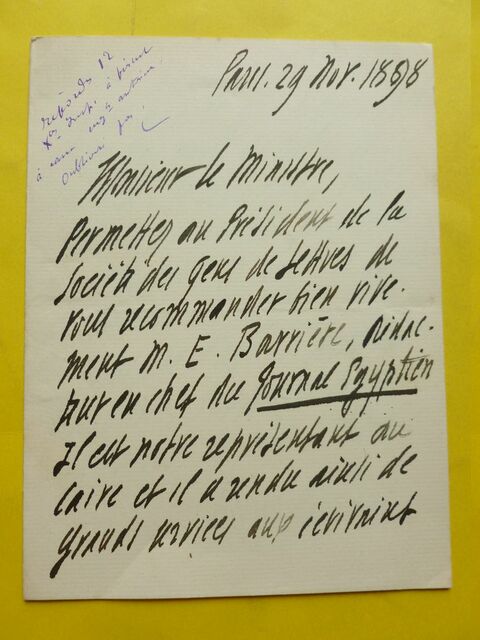 répondu 12
à
oublier pas
Paris. 29 Nov. 1898
Monsieur le Ministre,
Permettez au Président de la
Société des gens de Lettres de
vous recommander bien vive-
ment M. E. Barrière, rédac-
teur en chef du Journal Egyptien
Il est notre représentant au
Caire et il a rendu ainsi de
grands services aux écrivains